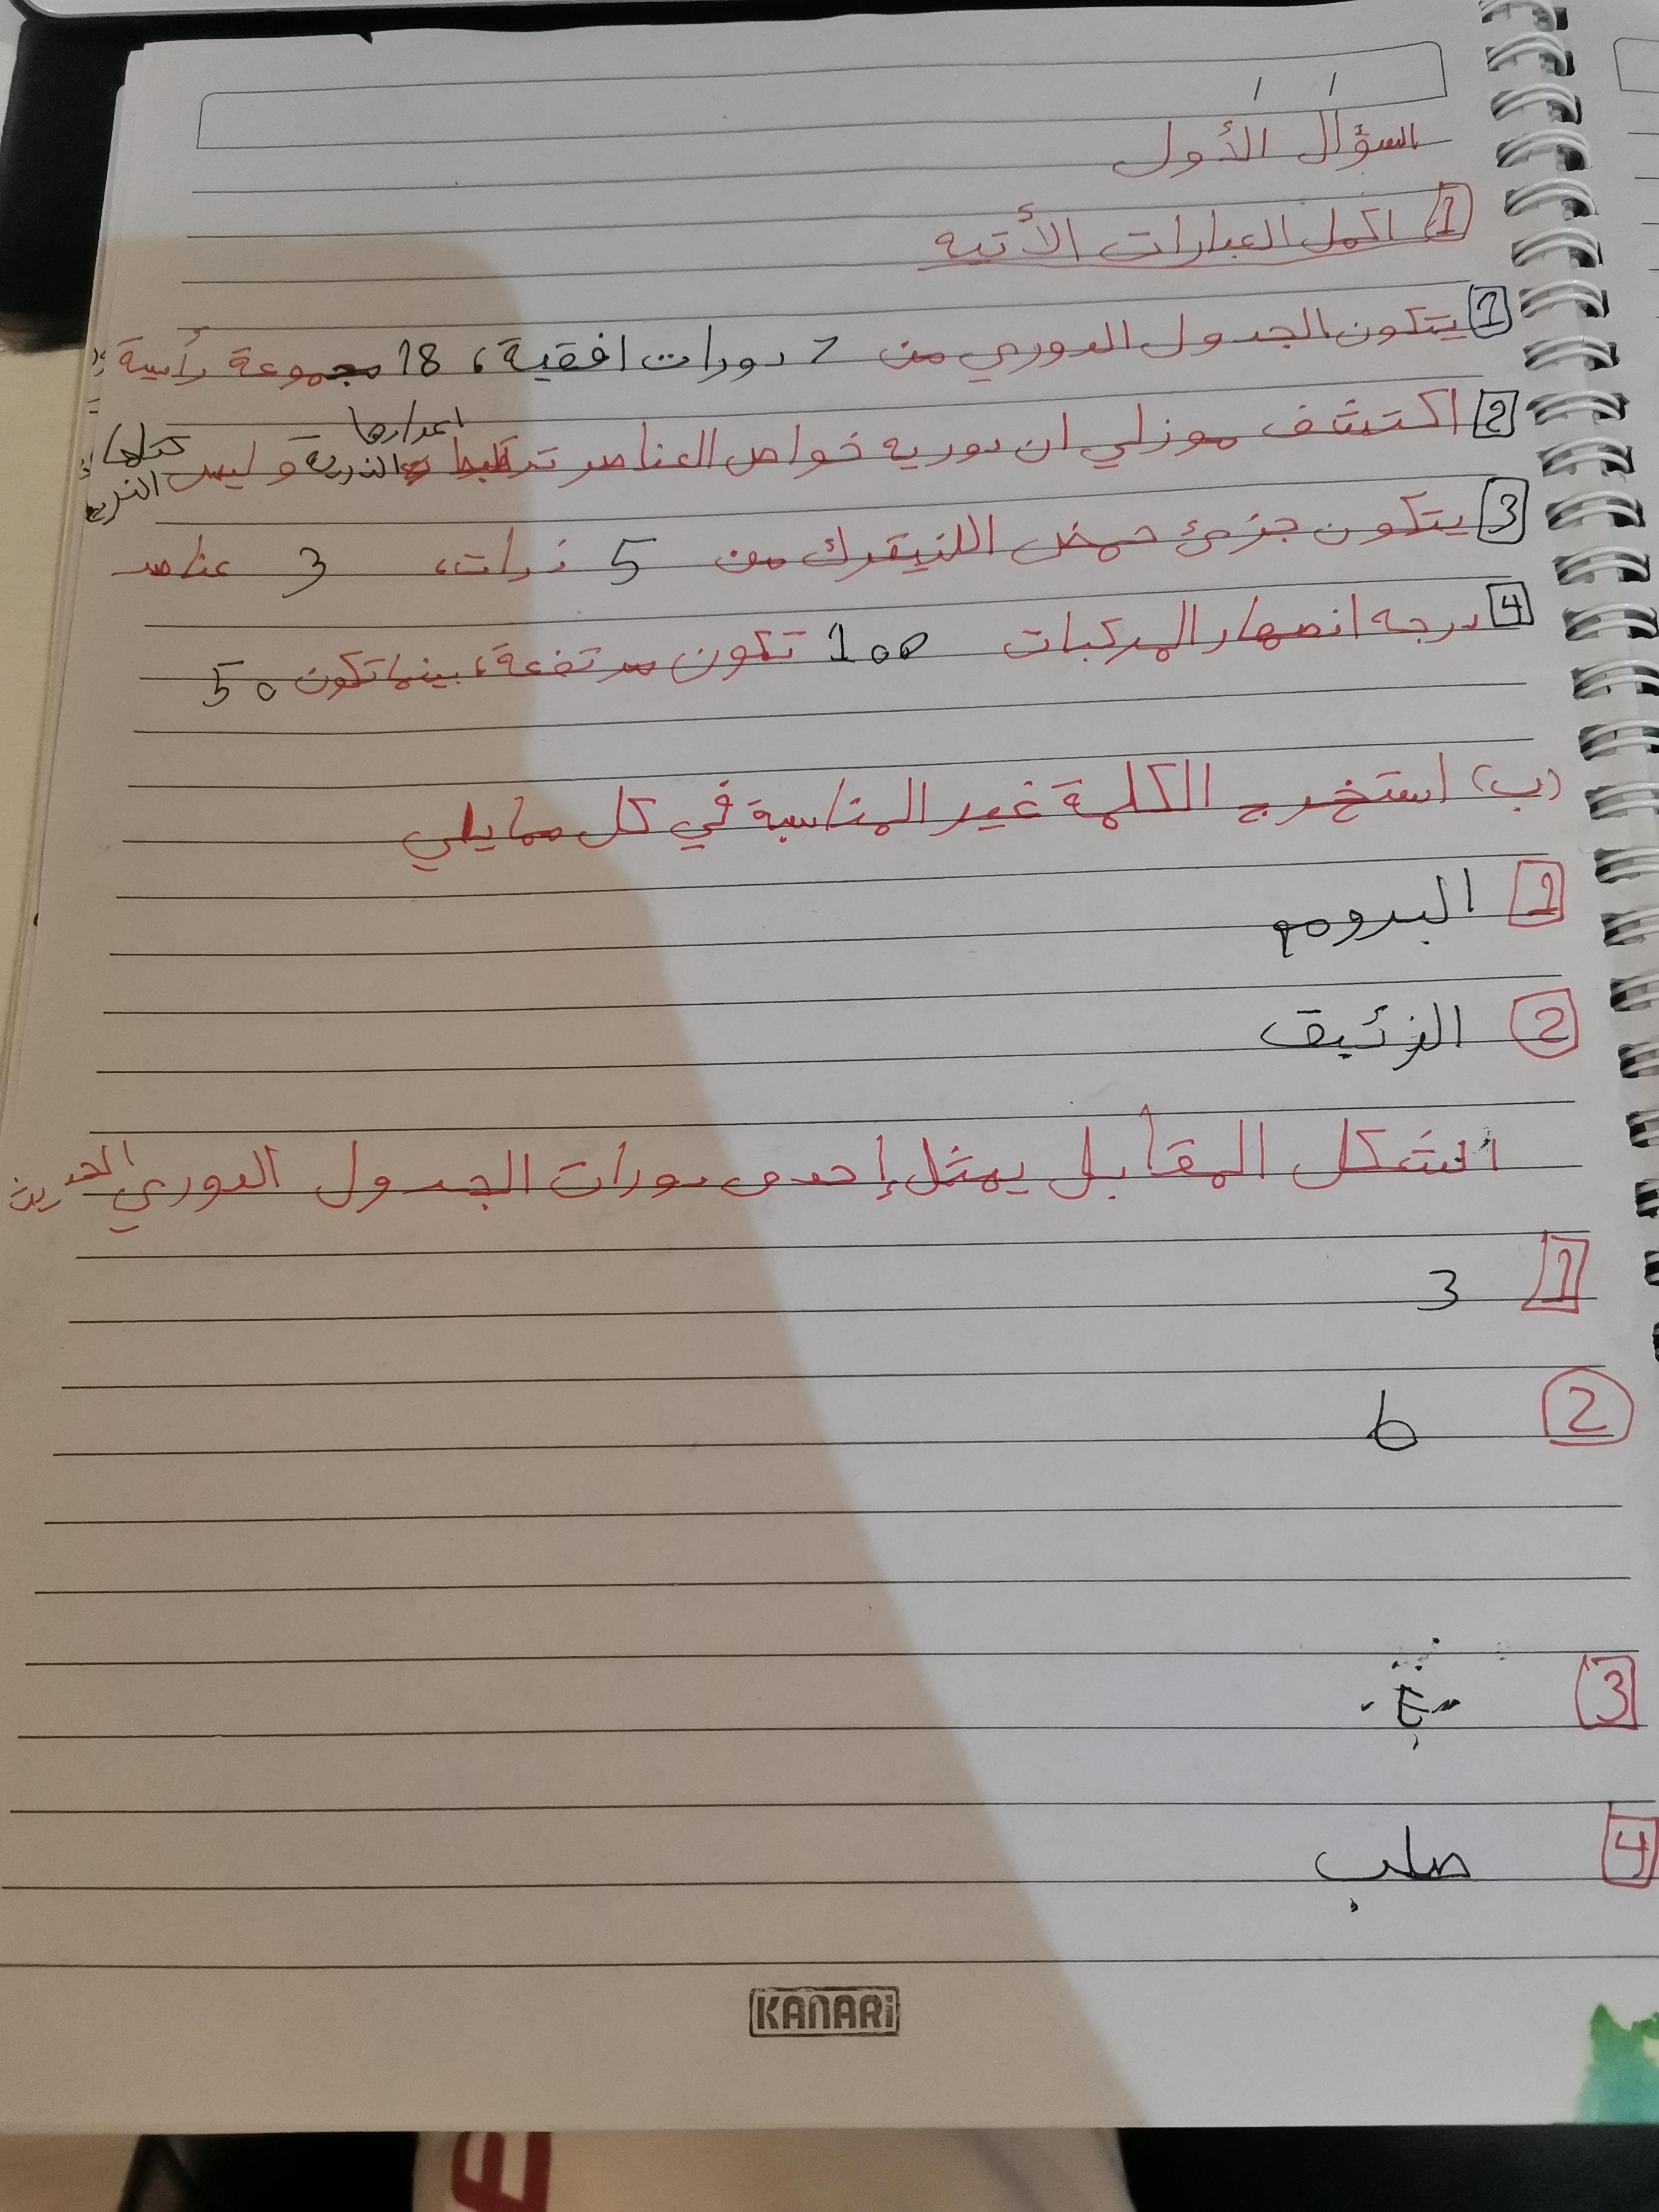 السؤال الأول
1 اكمل العبارات الأتيه
1 يتكون الجدول الدوري من 7 دورات افقية، 18 مجموعة رأسية
2 اكتشف موزلي ان دوريه خواص العناصر ترتبط اعدادها الذرية وليس كتلها
3 يتكون جزئ حمض النيتريك من 5 ذرات، 3 عناصر
4 درجه انصهار المركبات 100 تكون مرتفعة، بينما تكون 50
(ب) استخرج الكلمة غير المناسبة في كل مما يلي
1 البروم
2 الزئيق
الشكل المقابل يمثل إحدى دورات الجدول الدوري الحديث
1 3
2 6
3
4 صلب
KANARi